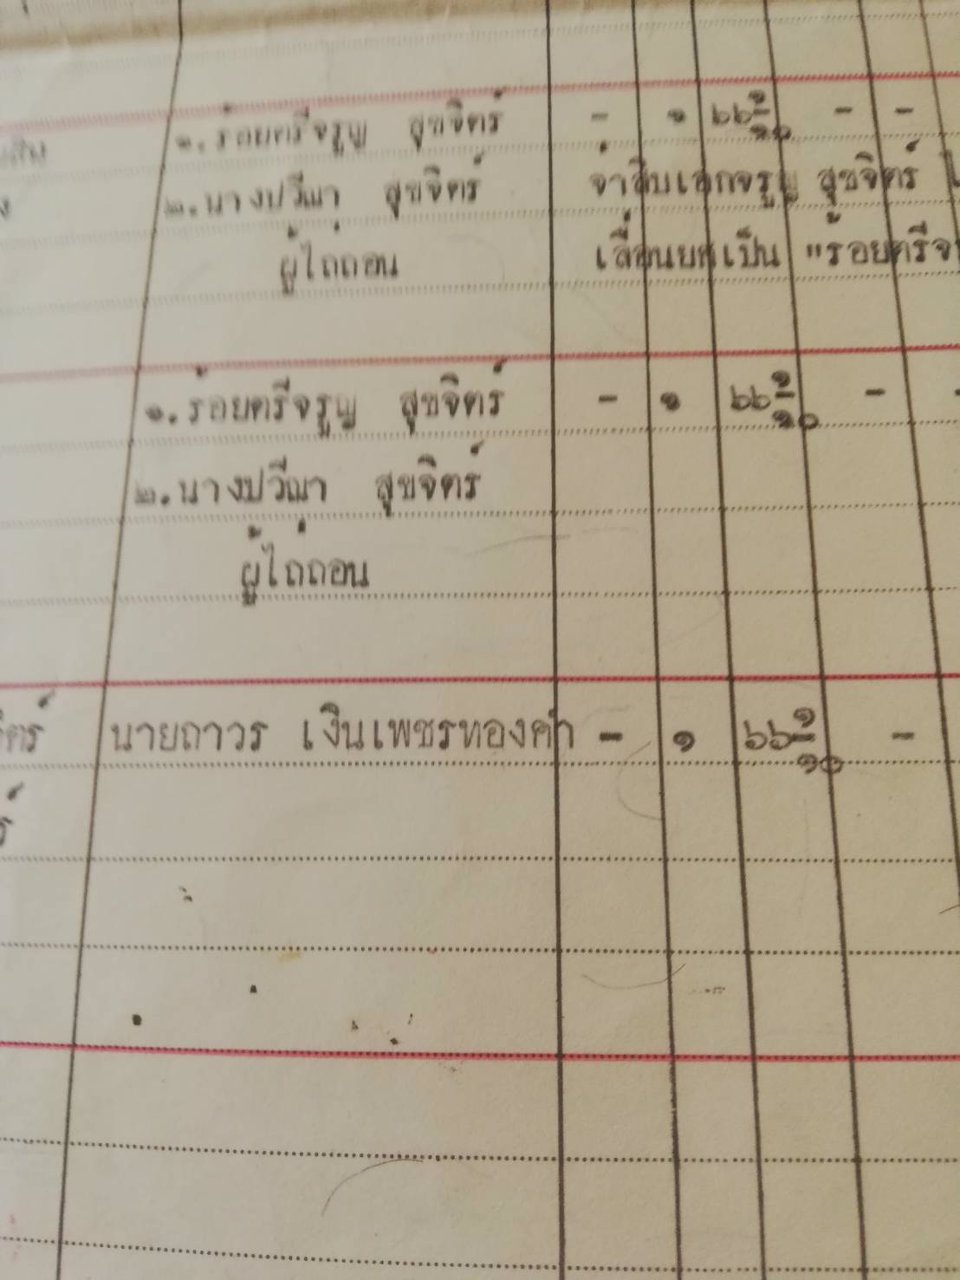 ๑. ร้อยตรีจรูญ สุขจิตร์ - ๑ ๖๖ ๑/๑๐ - -
๒. นางปวีณา สุขจิตร์ จ่าสิบเอกจรูญ สุขจิตร์
ผู้ไถ่ถอน เลื่อนยศเป็น "ร้อยตรีจ
๑. ร้อยตรีจรูญ สุขจิตร์ - ๑ ๖๖ ๑/๑๐ - -
๒. นางปวีณา สุขจิตร์
ผู้ไถ่ถอน
นายถาวร เงินเพชรทองคำ - ๑ ๖๖ ๑/๑๐ -